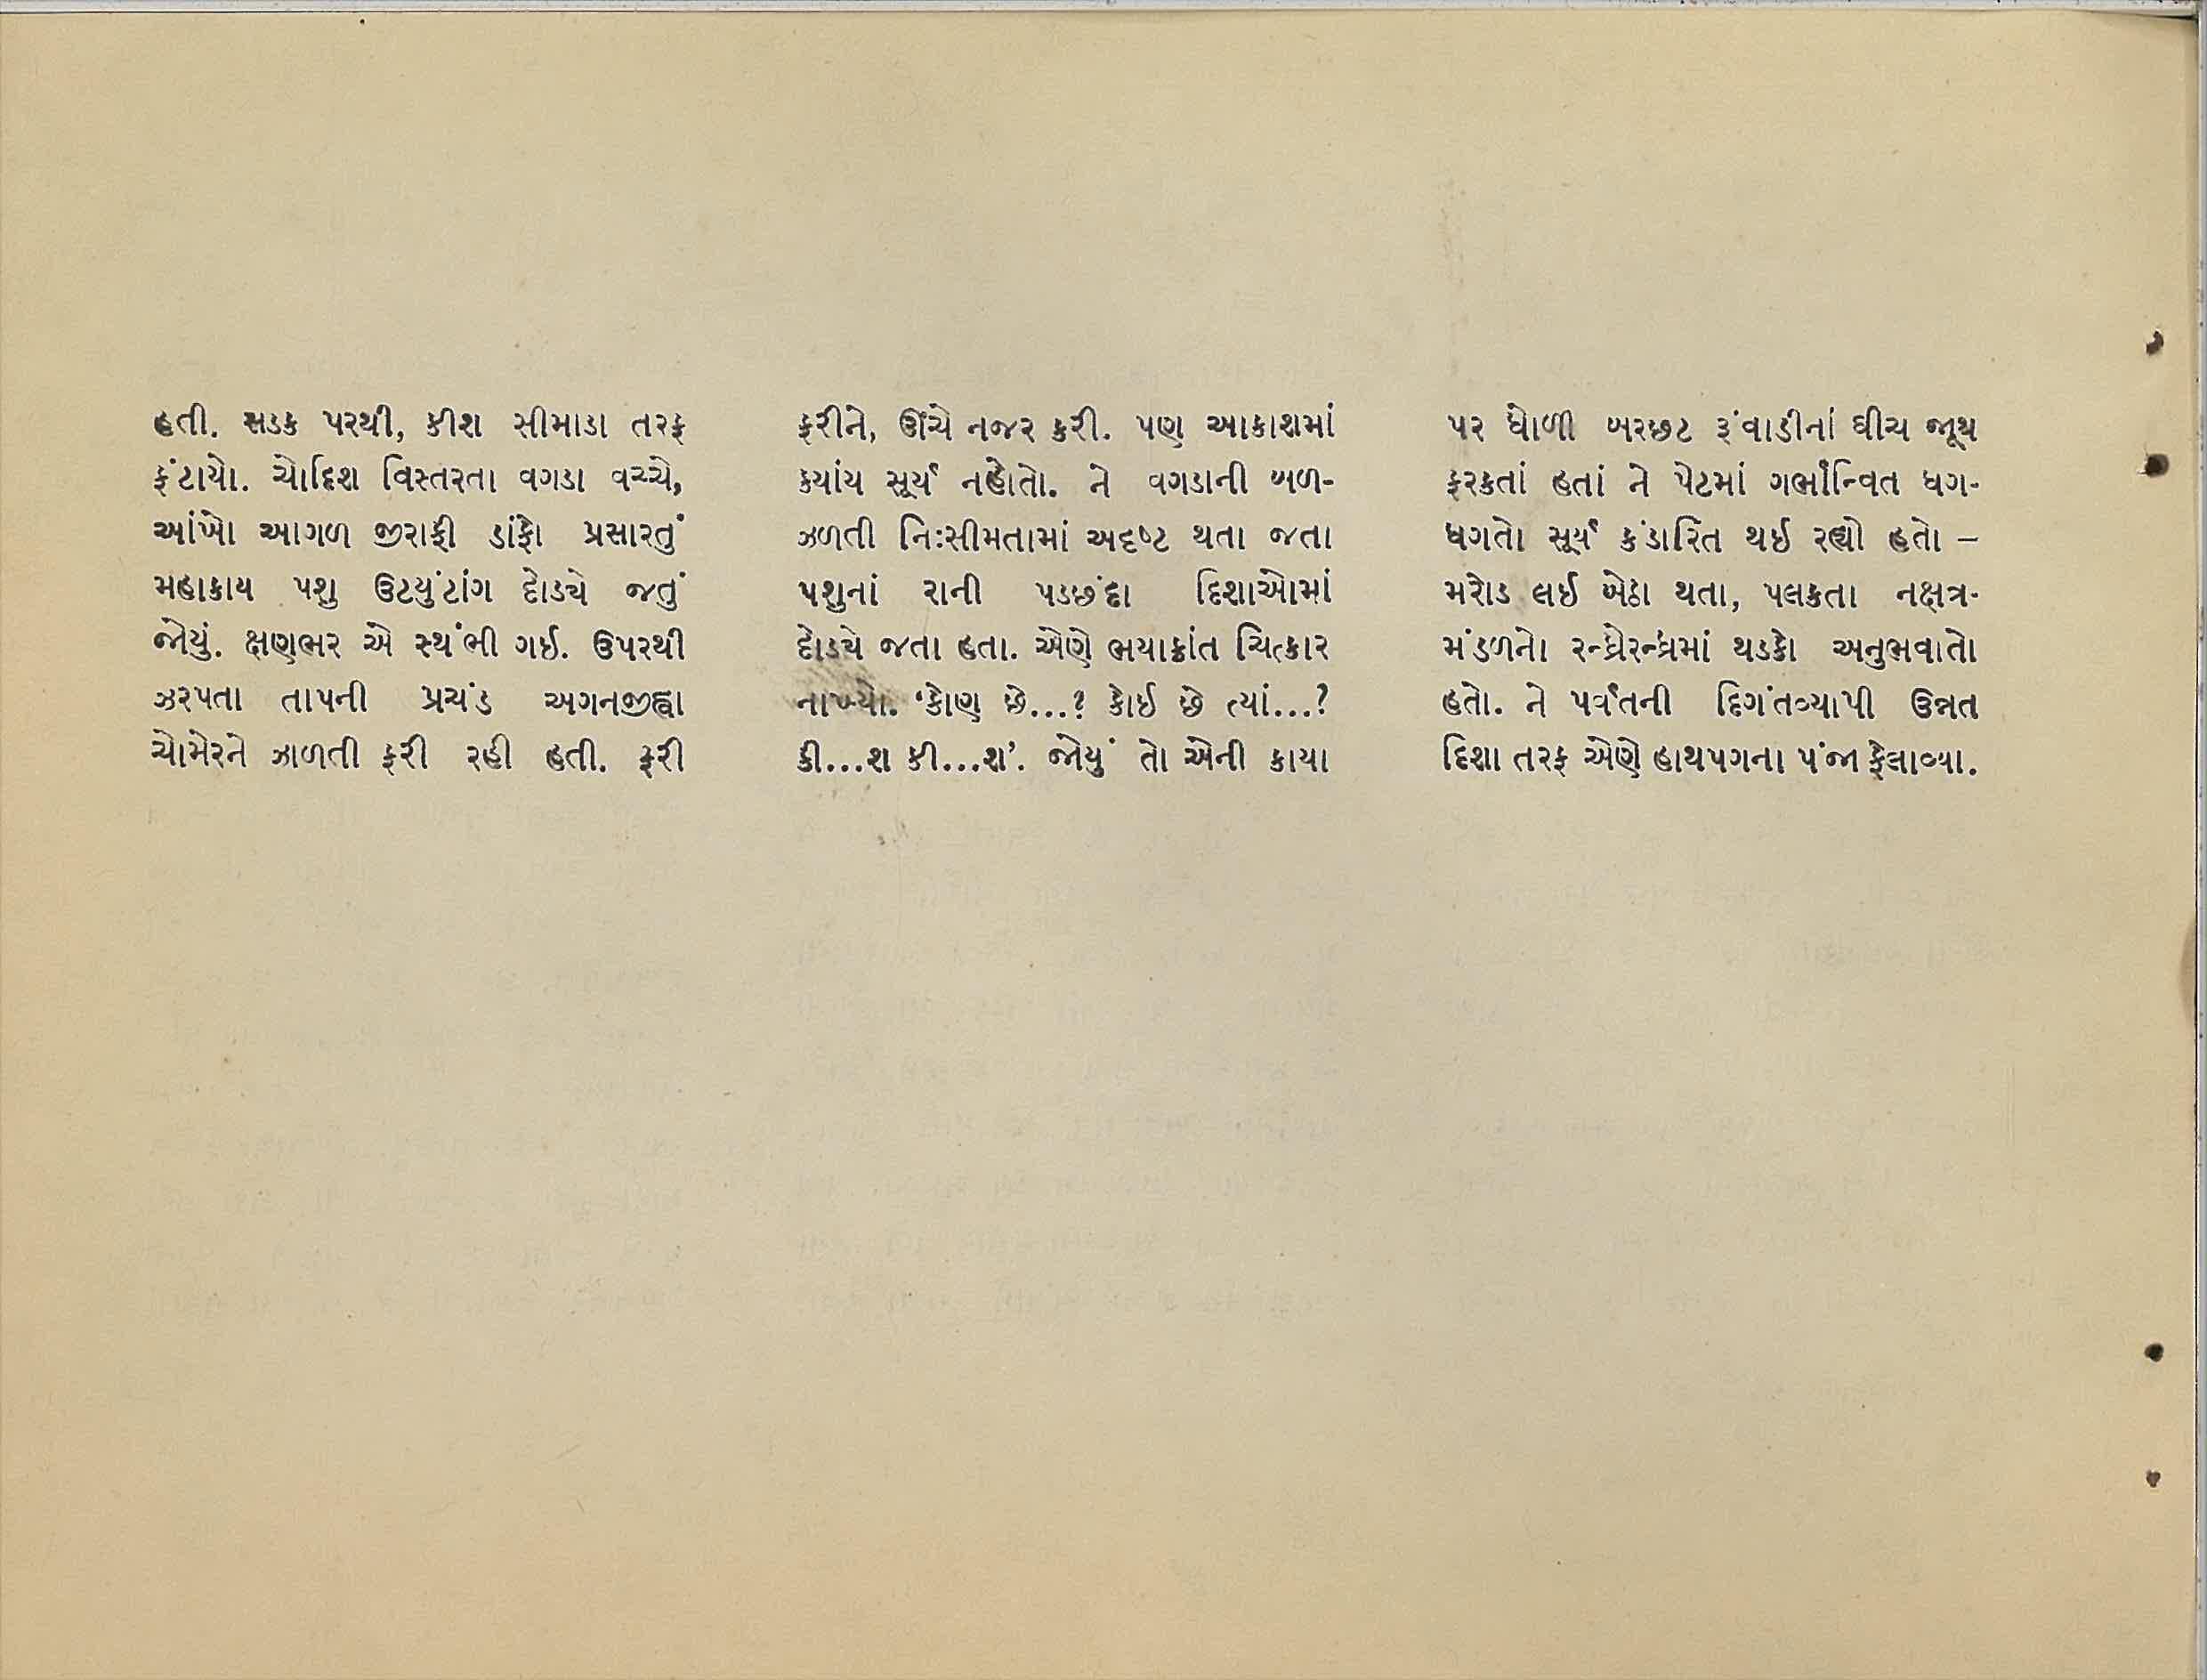 હતી. સડક પરથી, કીશ સીમાડા તરફ
ફંટાયો. ચોદિશ વિસ્તરતા વગડા વચ્ચે,
આંખો આગળ જીરાફી ડાંફો પ્રસારતું
મહાકાય પશુ ઉટયુંટાંગ દોડ્યે જતું
જોયું. ક્ષણભર એ સ્થંભી ગઈ. ઉપરથી
ઝરપતા તાપની પ્રચંડ અગનજીહ્વા
ચોમેરને ઝાળતી ફરી રહી હતી. ફરી
ફરીને, ઊંચે નજર કરી. પણ આકાશમાં
ક્યાંય સૂર્ય નહોતો. ને વગડાની બળ-
ઝળતી નિઃસીમતામાં અદૃષ્ટ થતા જતા
પશુનાં રાની પડછંદા દિશાઓમાં
દોડ્યે જતા હતા. એણે ભયાક્રાંત ચિત્કાર
નાખ્યો. ‘કોણ છે...? કોઈ છે ત્યાં...?
કી...શ કી...શ’. જોયું તો એની કાયા
પર ધોળી બરછટ રૂંવાડીનાં ઘીચ જૂથ
ફરકતાં હતાં ને પેટમાં ગર્ભાન્વિત ધગ-
ધગતો સૂર્ય કંડારિત થઈ રહ્યો હતો –
મરોડ લઈ બેઠા થતા, પલકતા નક્ષત્ર-
મંડળનો રન્ધ્રેરન્ધ્રમાં થડકો અનુભવાતો
હતો. ને પર્વતની દિગંતવ્યાપી ઉન્નત
દિશા તરફ એણે હાથપગના પંજા ફેલાવ્યા.